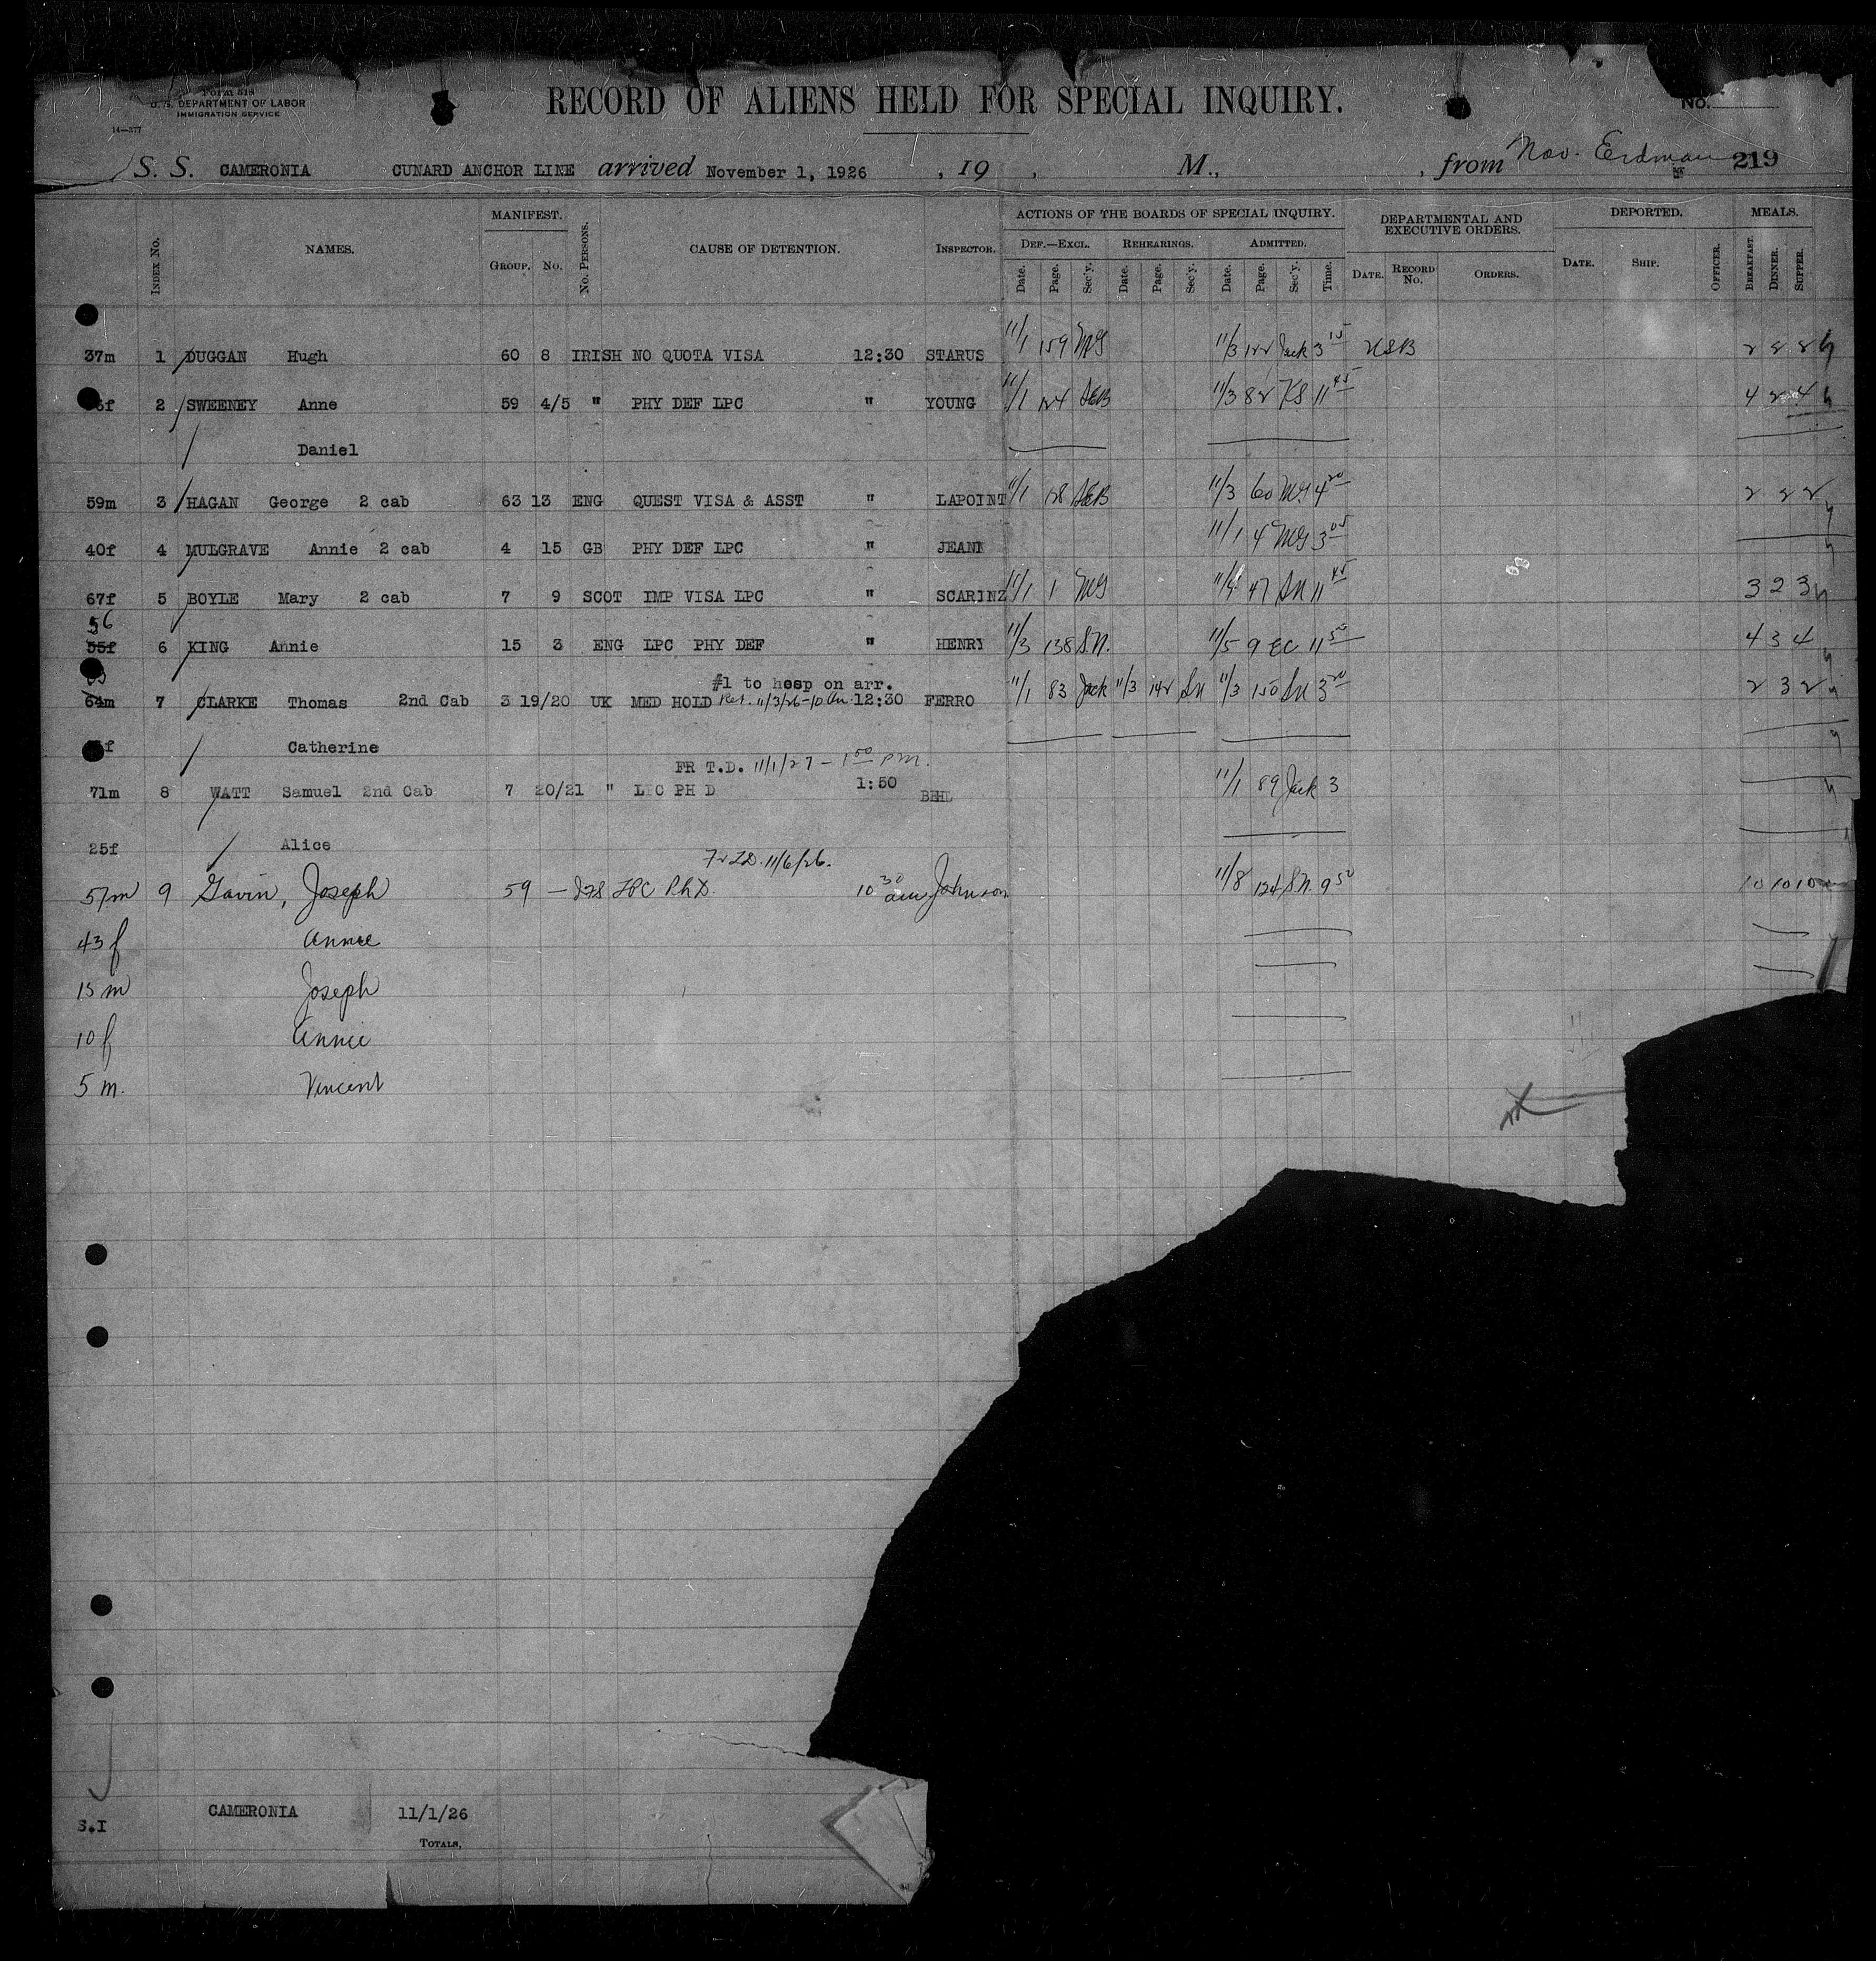 Form 518
U. S. DEPARTMENT OF LABOR
IMMIGRATION SERVICE
14—377
RECORD OF ALIENS HELD FOR SPECIAL INQUIRY.
No.
S. S. CAMERONIA CUNARD ANCHOR LINE arrived November 1, 1926 , 19 , M., , from Nov. Erdman 219
MANIFEST. ACTIONS OF THE BOARDS OF SPECIAL INQUIRY. DEPARTMENTAL AND EXECUTIVE ORDERS. DEPORTED. MEALS.
Index No. NAMES. Group. No. No. Persons. CAUSE OF DETENTION. Inspector. Def.—Excl. Rehearings. Admitted.
Date. Page. Sec'y. Date. Page. Sec'y. Date. Page. Sec'y. Time. Date. Record No. Orders. Date. Ship. Officer. Breakfast. Dinner. Supper.
37m 1 DUGGAN Hugh 60 8 IRISH NO QUOTA VISA 12:30 STARUS 11/1 159 MG 11/3 122 Jack 3 15 2 2 2
2 SWEENEY Anne 59 4/5 " PHY DEF LPC " YOUNG 11/1 124 11/3 82 KS 11 45 4 2 4
Daniel
59m 3 HAGAN George 2 cab 63 13 ENG QUEST VISA & ASST " LAPOINT 11/1 128 11/3 60 MG 4 20 2 2 2
40f 4 MULGRAVE Annie 2 cab 4 15 GB PHY DEF LPC " JEANN 11/1 4 MG 3 05
67f 5 BOYLE Mary 2 cab 7 9 SCOT IMP VISA LPC " SCARINZ 11/1 1 MG 11/4 47 SN 11 45 3 2 3
56
55f 6 KING Annie 15 3 ENG LPC PHY DEF " HENRY 11/3 138 S.N. 11/5 9 EC 11 50 4 3 4
#1 to hosp on arr.
64m 7 CLARKE Thomas 2nd Cab 3 19/20 UK MED HOLD Ret. 11/3/26-10 Am 12:30 FERRO 11/1 83 Jack 11/3 142 SN 11/3 150 SN 3 20 2 3 2
Catherine
FR T.D. 11/1/27 - 1 50 P.M.
71m 8 WATT Samuel 2nd Cab 7 20/21 " LPC PH D 1:50 BEHL 11/1 89 Jack 3
25f Alice
Fr T.D. 11/6/26.
57m 9 Gavin, Joseph 59 — LPC Ph.D. 10 30 am Johnson 11/8 124 S.N. 9 50 10 10 10
43 f Annie
15 m Joseph
10 f Annie
5 m. Vincent
S.I CAMERONIA 11/1/26
Totals,